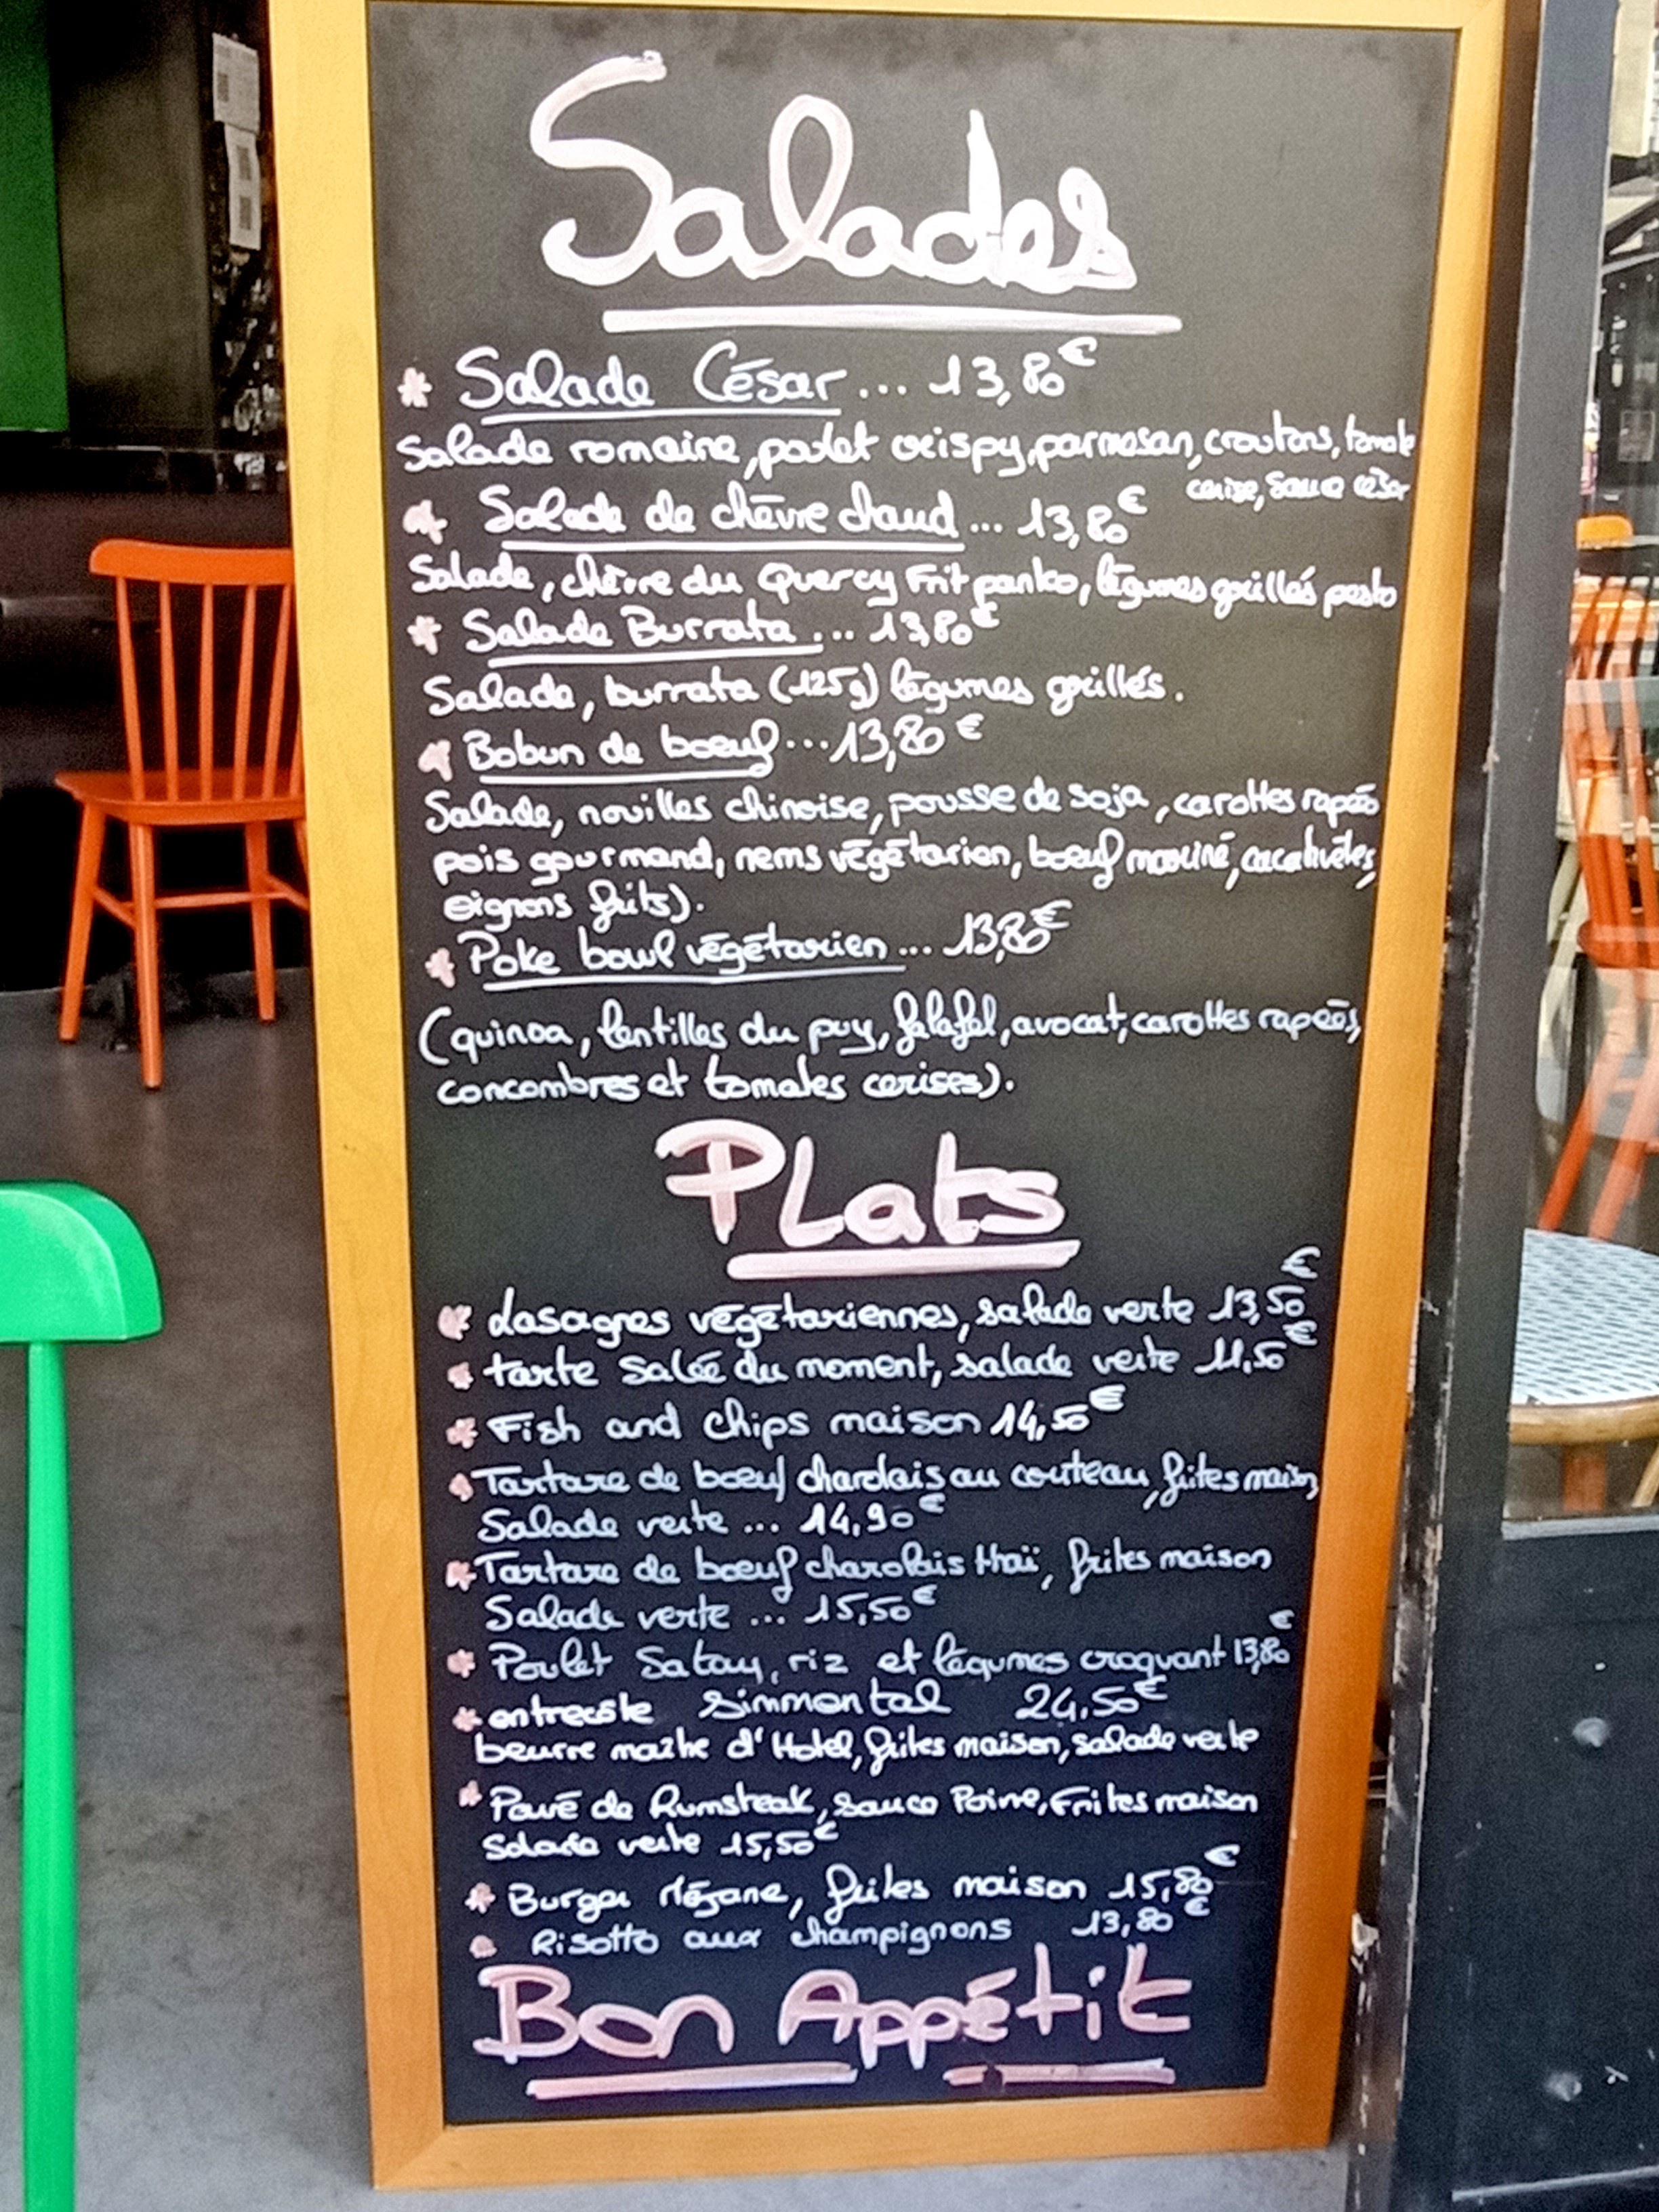 Salades
* Salade César ... 13,80€
Salade romaine, poulet crispy, parmesan, croutons, tomate
cerise, Sauce césar
* Salade de chèvre chaud ... 13,80€
Salade, chèvre du Quercy Frit panko, légumes grillés pesto
* Salade Burrata ... 13,80€
Salade, burrata (125g) légumes grillés.
* Bobun de boeuf ... 13,80€
Salade, nouilles chinoise, pousse de soja, carottes rapées
pois gourmand, nems végétarien, boeuf mariné, cacahuètes,
oignons frits).
* Poke bowl végétarien ... 13,80€
(quinoa, lentilles du puy, falafel, avocat, carottes rapées,
concombres et tomates cerises).
PLats
* Lasagnes végétariennes, salade verte 13,50€
* tarte salée du moment, salade verte 11,50€
* Fish and chips maison 14,50€
* Tartare de boeuf charolais au couteau, frites maison,
Salade verte ... 14,90€
* Tartare de boeuf charolais thaï, frites maison
Salade verte ... 15,50€
* Poulet Satay, riz et légumes croquant 13,80€
* entrecôte Simmental 24,50€
beurre maître d'Hotel, frites maison, salade verte
* Pavé de Rumsteak, sauce Poivre, Frites maison
Salade verte 15,50€
* Burger Mézane, frites maison 15,80€
* Risotto aux champignons 13,80€
Bon Appétit